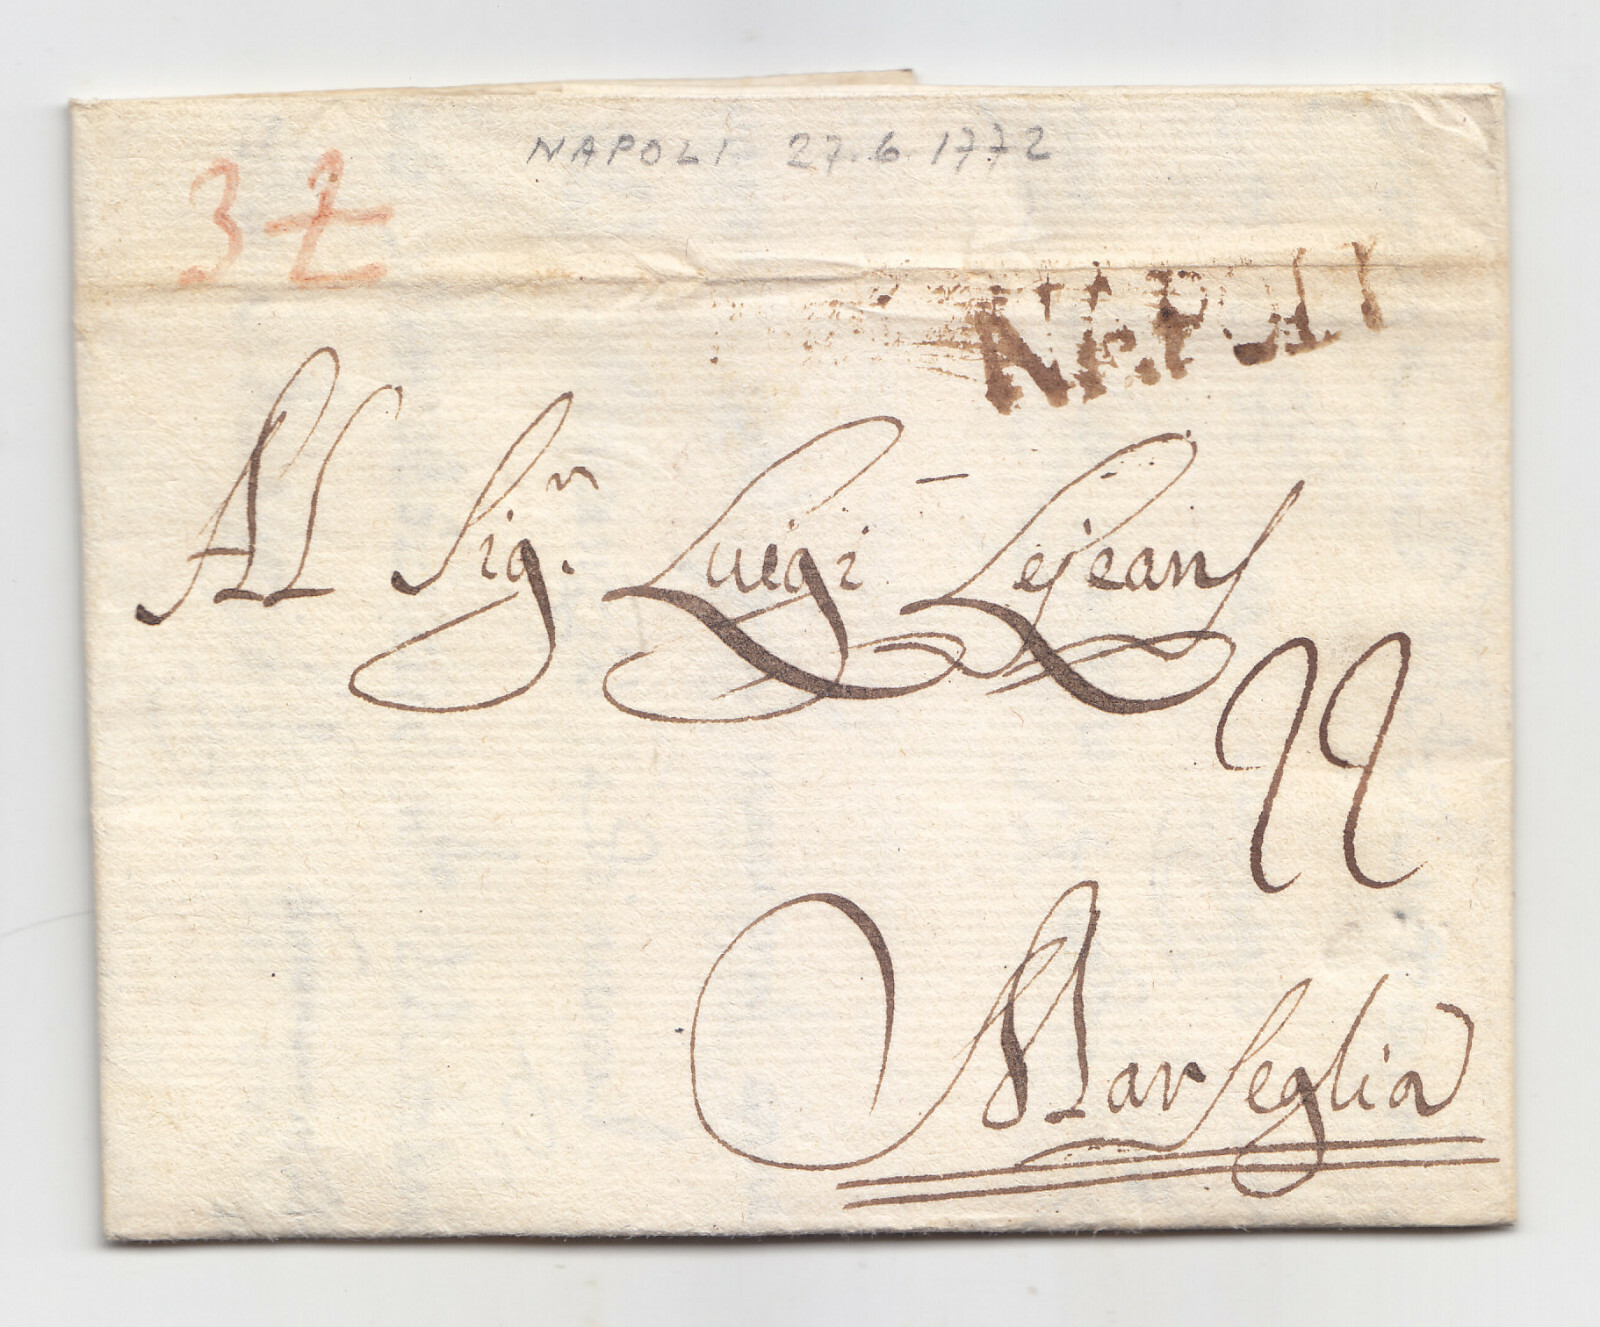 NAPOLI 27.6.1772
3 2
NAPOLI
Al Sig.n Luigi Lejeans
22
Marseglia